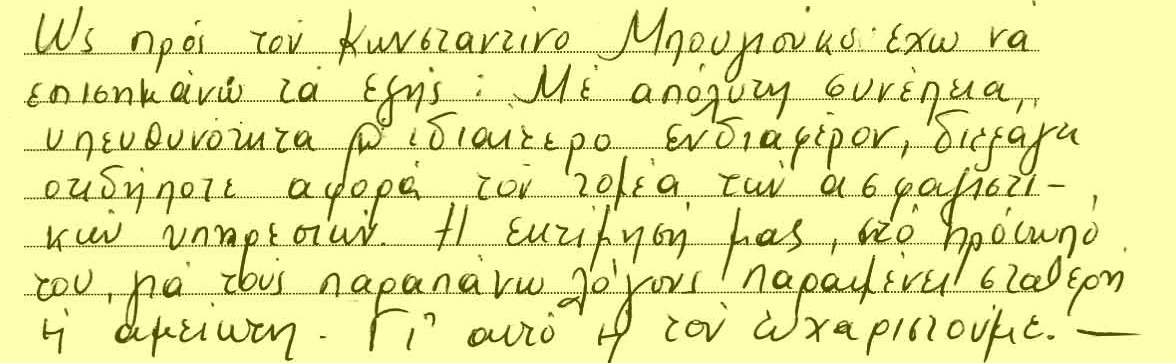 Ως πρός τόν Κωνσταντίνο Μπουγιούκο έχω νά
επισημάνω τά εξής: Μέ απόλυτη συνέπεια,
υπευθυνότητα κ ιδιαίτερο ενδιαφέρον, διεξάγει
οτιδήποτε αφορά τόν τομέα τών ασφαλιστι-
κών υπηρεσιών. Η εκτίμησή μας, στό πρόσωπό
του, γιά τούς παραπάνω λόγους παραμένει σταθερή
κ αμείωτη. Γι' αυτό κ τόν ευχαριστούμε. —